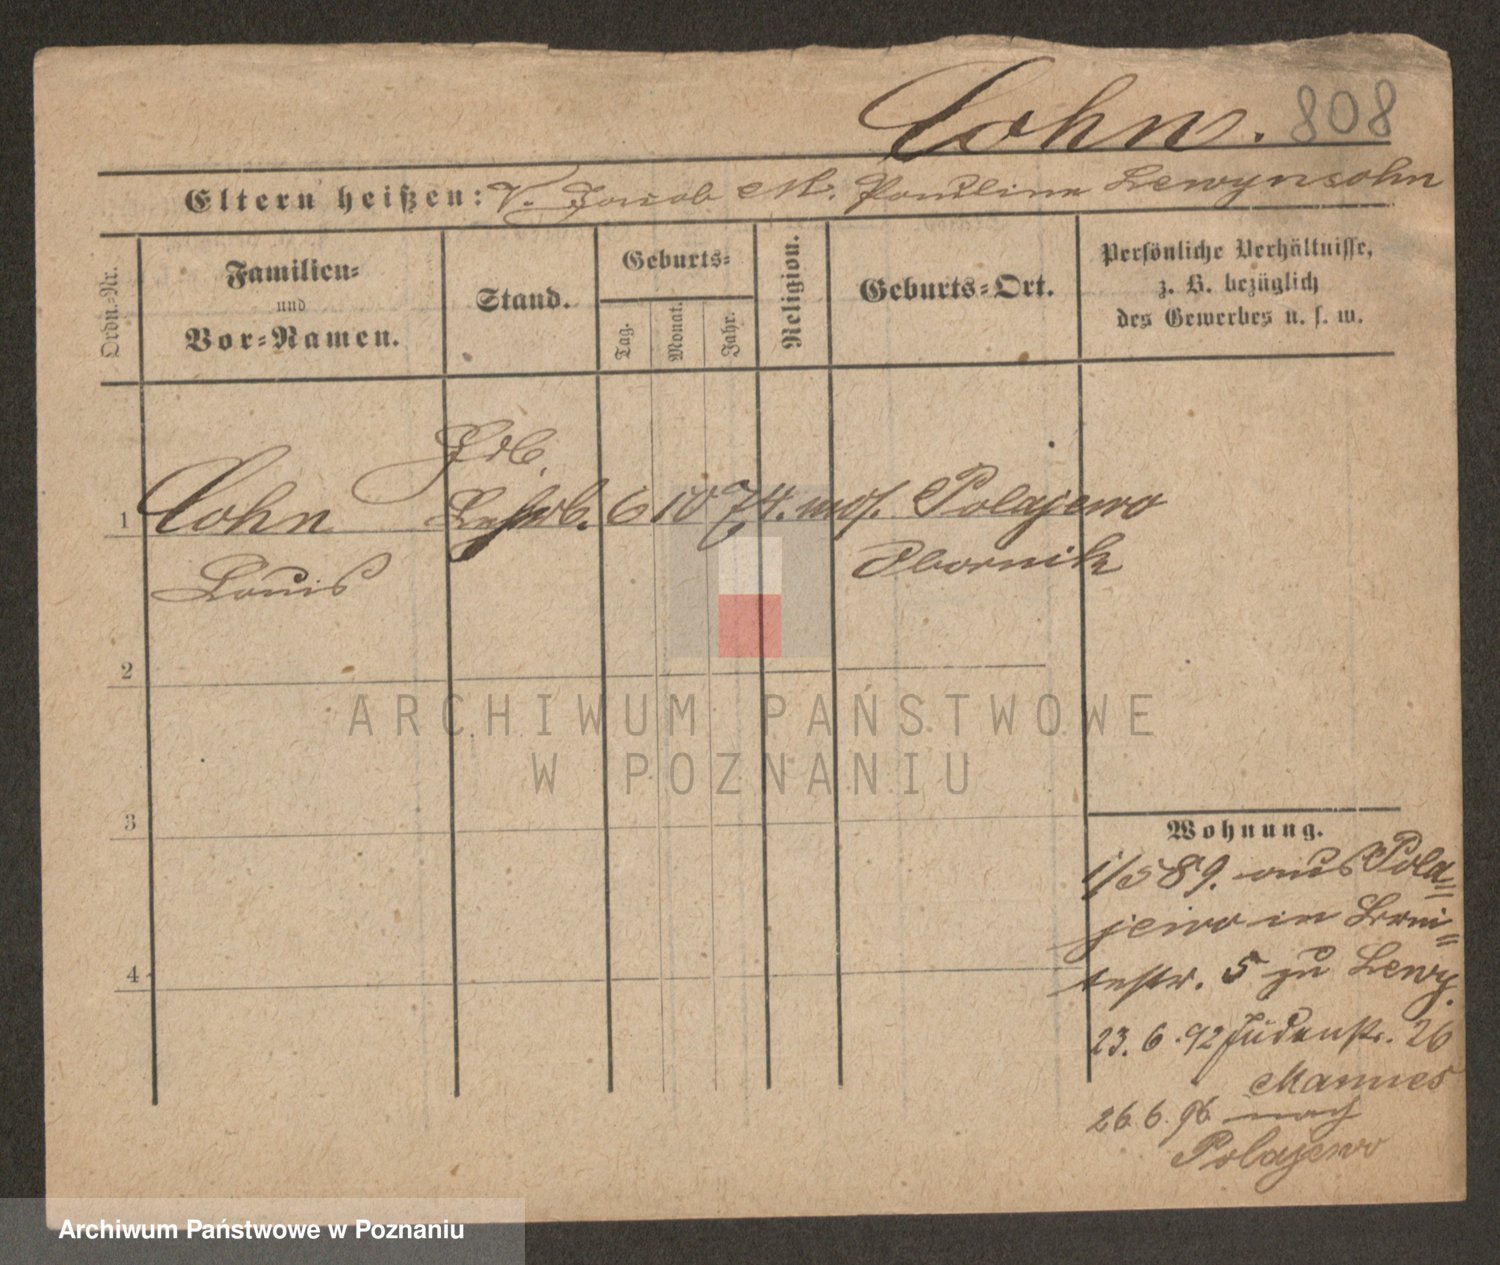 Cohn. 808
Eltern heißen: V. Jacob M. Pauline Lewynsohn
Ordn.-Nr.
Familien-
und
Vor-Namen.
Stand.
Geburts-
Tag.
Monat.
Jahr.
Religion.
Geburts-Ort.
Persönliche Verhältnisse,
z. B. bezüglich
des Gewerbes u. s. w.
1 Cohn 6 10 74. mos. Polajewo
Louis Obornik
2
ARCHIWUM PAŃSTWOWE
W POZNANIU
3
4
Wohnung.
1/5 89. aus Pola=
jewo in
5 zu Lewy.
23. 6. 92 Judenstr. 26
26. 6. 96 nach
Polajewo
Archiwum Państwowe w Poznaniu